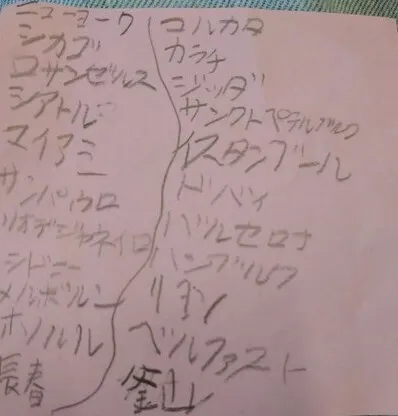 ニューヨーク
シカゴ
ロサンゼルス
シアトル
マイアミ
サンパウロ
リオデジャネイロ
シドニー
メルボルン
ホノルル
長春
コルカタ
カラチ
ジッダ
サンクトペテルブルク
イスタンブール
ドバイ
バルセロナ
ハンブルク
リヨン
ベルファスト
釜山